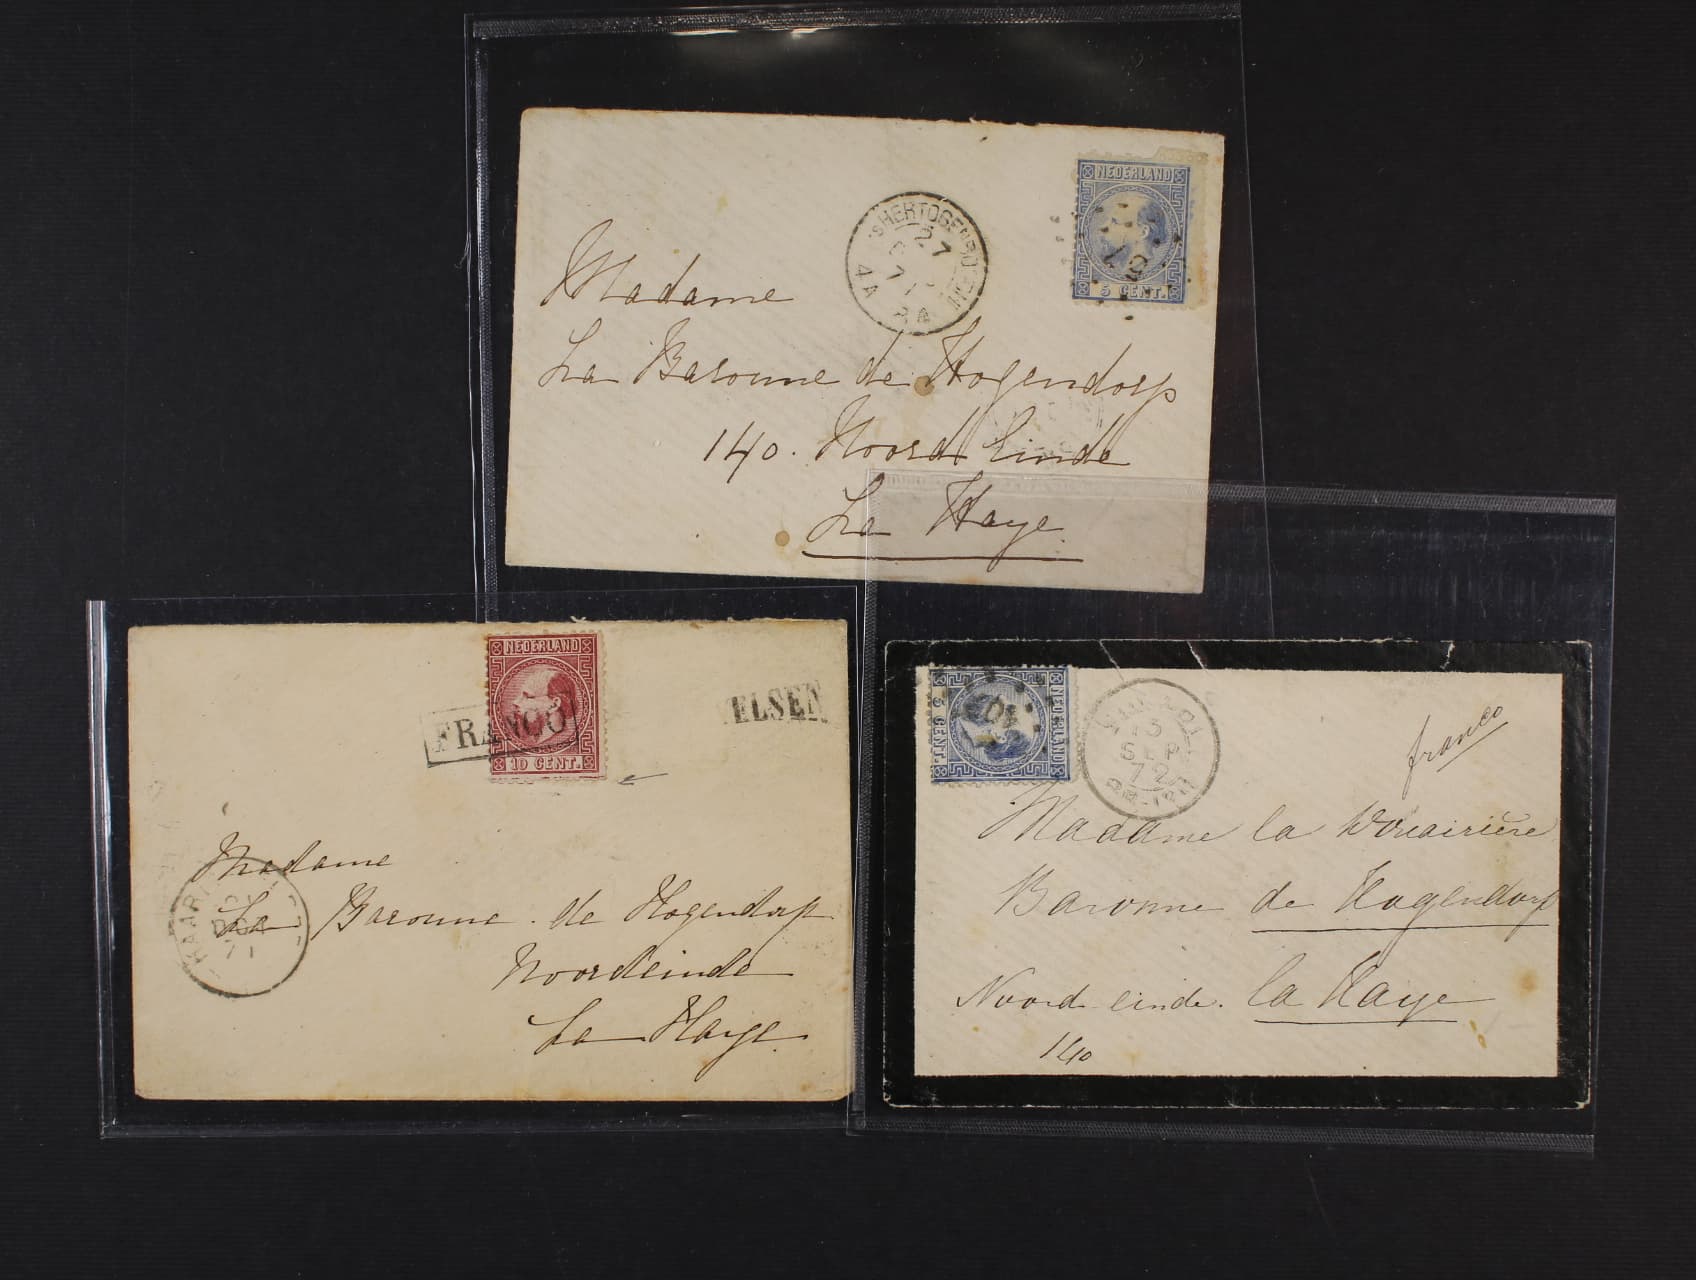 NEDERLAND
5 CENT.
57
'SHERTOGENBOSCH
27
6
71
4A
8A
Madame
La Baronne de Hogendorp
140. Noord Einde
La Haye.
NEDERLAND
10 CENT.
FRANCO
ELSEN
DEC
71
Madame
La Baronne de Hogendorp
Noordeinde
La Haye.
NEDERLAND
5 CENT.
13
SEP
72
franco
Madame la Douairière
Baronne de Hogendorp
Noord einde. la Haye
140